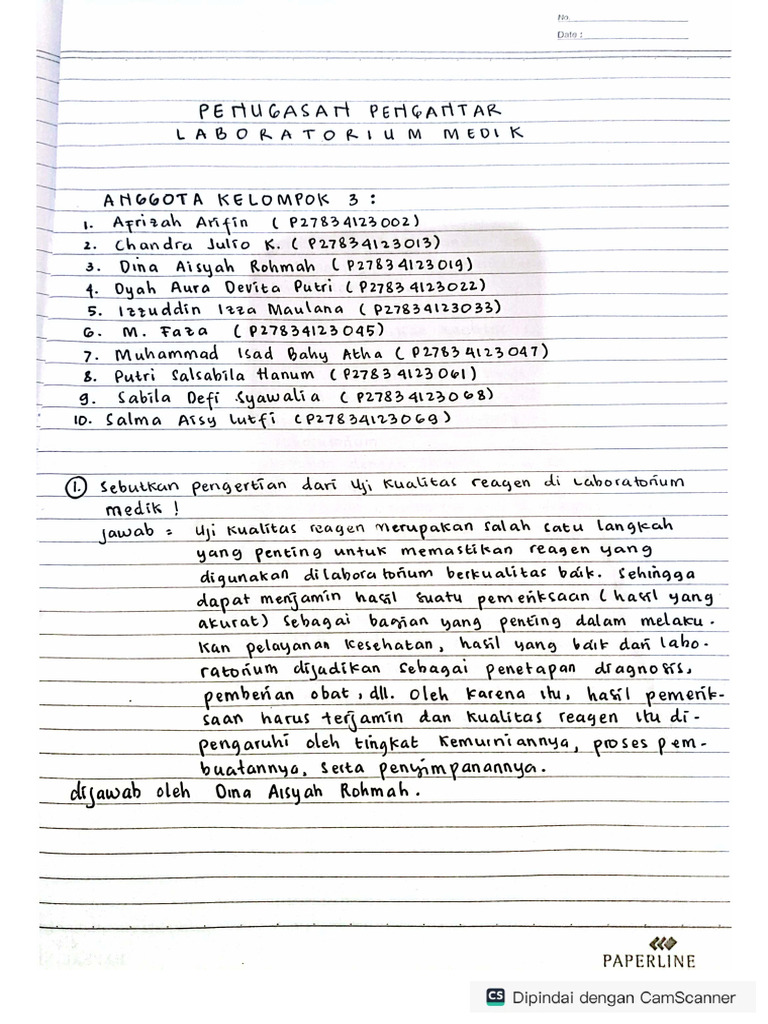 No.
Date :
PENUGASAN PENGANTAR
LABORATORIUM MEDIK
ANGGOTA KELOMPOK 3 :
1. Afrizah Arifin ( P27834123002)
2. Chandra Julio K. ( P27834123013)
3. Dina Aisyah Rohmah ( P27834123019)
4. Dyah Aura Devita Putri ( P27834123022)
5. Izzuddin Izza Maulana ( P27834123033)
6. M. Faza ( P27834123045)
7. Muhammad Isad Bahy Atha ( P27834123047)
8. Putri Salsabila Hanum ( P27834123061)
9. Sabila Defi Syawalia ( P27834123068)
10. Salma Aisy Lutfi ( P27834123069)
1. Sebutkan pengertian dari Uji kualitas reagen di Laboratorium
medik !
jawab = Uji kualitas reagen merupakan salah satu langkah
yang penting untuk memastikan reagen yang
digunakan dilaboratorium berkualitas baik. Sehingga
dapat menjamin hasil suatu pemeriksaan ( hasil yang
akurat) sebagai bagian yang penting dalam melaku-
kan pelayanan kesehatan, hasil yang baik dari labo-
ratorium dijadikan sebagai penetapan diagnosis,
pemberian obat, dll. Oleh karena itu, hasil pemerik-
saan harus terjamin dan kualitas reagen itu di-
pengaruhi oleh tingkat kemurniannya, proses pem-
buatannya, serta penyimpanannya.
dijawab oleh Dina Aisyah Rohmah.
PAPERLINE
CS Dipindai dengan CamScanner